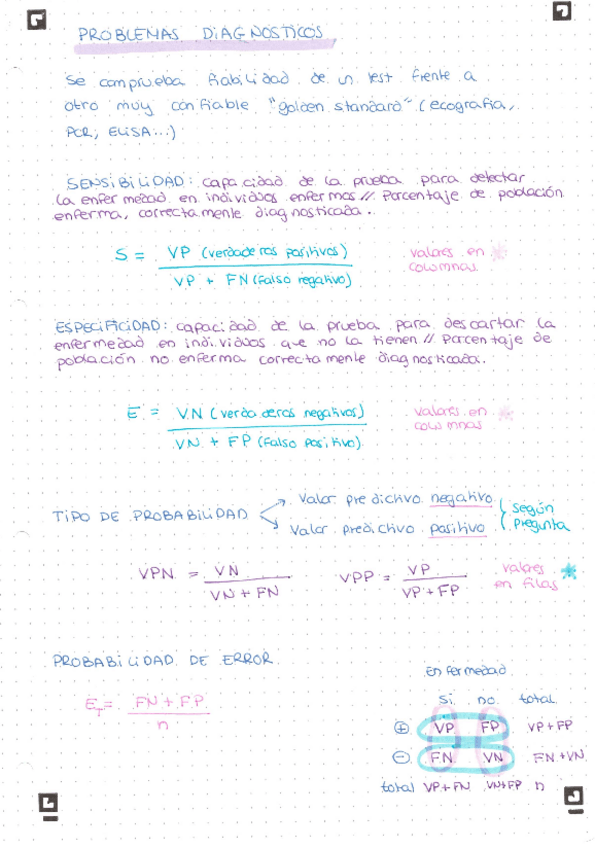 PROBLEMAS DIAGNOSTICOS
Se comprueba fiabilidad de un test frente a
otro muy confiable "golden standard" (ecografia,
PCR, ELISA...)
SENSIBILIDAD: capacidad de la prueba para detectar
la enfermedad en individuos enfermos // Porcentaje de población
enferma, correctamente diagnosticada.
S = VP (verdaderos positivos) / VP + FN (Falso negativo)
valores en *
columnas
ESPECIFICIDAD: capacidad de la prueba para descartar la
enfermedad en individuos que no la tienen // Porcentaje de
población no enferma correctamente diagnosticada.
E = VN (verdaderos negativos) / VN + FP (Falso positivo)
valores en *
columnas
TIPO DE PROBABILIDAD
Valor predictivo negativo
Valor predictivo positivo
según
pregunta
VPN = VN / VN + FN
VPP = VP / VP + FP
valores *
en filas
PROBABILIDAD DE ERROR
E_T = FN + FP / n
Enfermedad
si no total
+ VP FP VP + FP
- FN VN FN + VN
total VP + FN VN + FP n